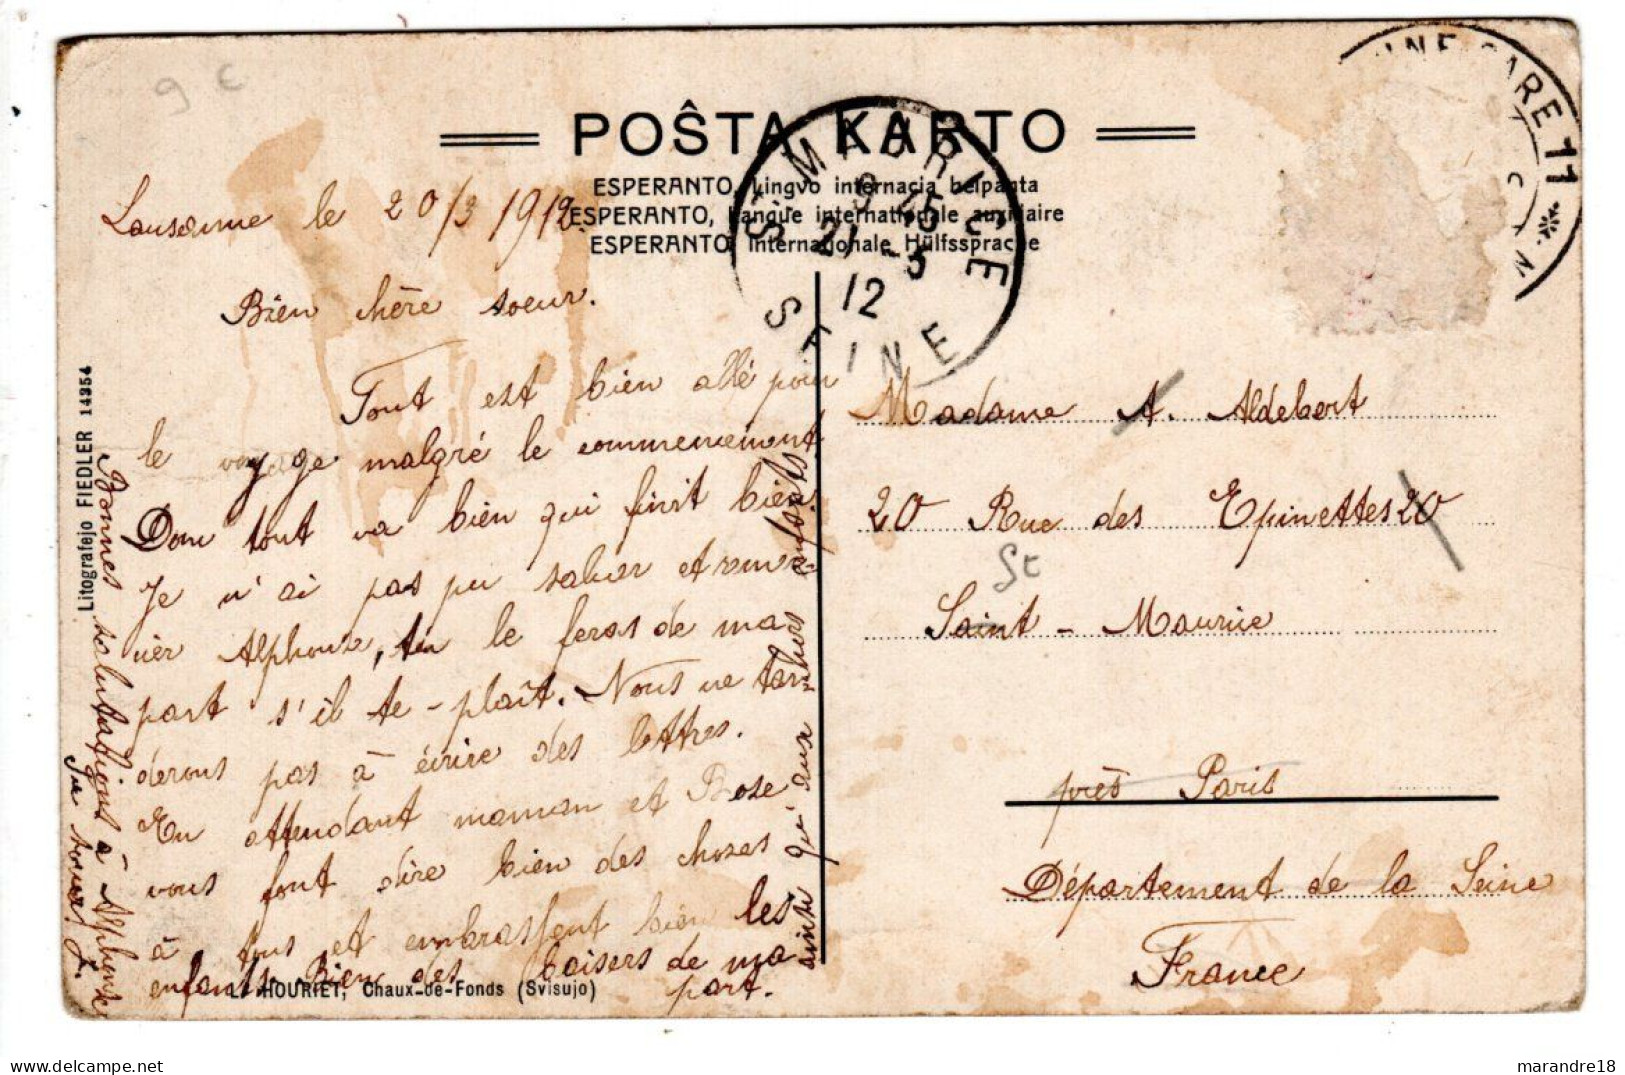 9 c
POŜTA KARTO
ESPERANTO, Lingvo internacia helpanta
ESPERANTO, Langue internationale auxiliaire
ESPERANTO, Internationale Hülfssprache
ST MAURICE
9 45
21 -3
12
SEINE
GARE 11
Lausanne le 20/3 1912.
Bien chère soeur.
Tout est bien allé pour
le voyage malgré le commencement
Donc tout va bien qui finit bien.
Je n'ai pas pu saluer et remer
cier Alphonse, tu le feras de ma
part s'il te-plaît. Nous ne tar
derons pas à écrire des lettres.
En attendant maman et Rose
vous font dire bien des choses
à tous et embrassent bien les
enfants. Bien des baisers de ma
part.
ainsi qu'aux enfants
Bonnes salutations à Alphonse
Ta soeur J.
Madame A. Aldebert
20 Rue des Epinettes 20
St
Saint-Maurice
près Paris
Département de la Seine
France
Litografejo FIEDLER 14354
L. HOURIET, Chaux-de-Fonds (Svisujo)
marandre18